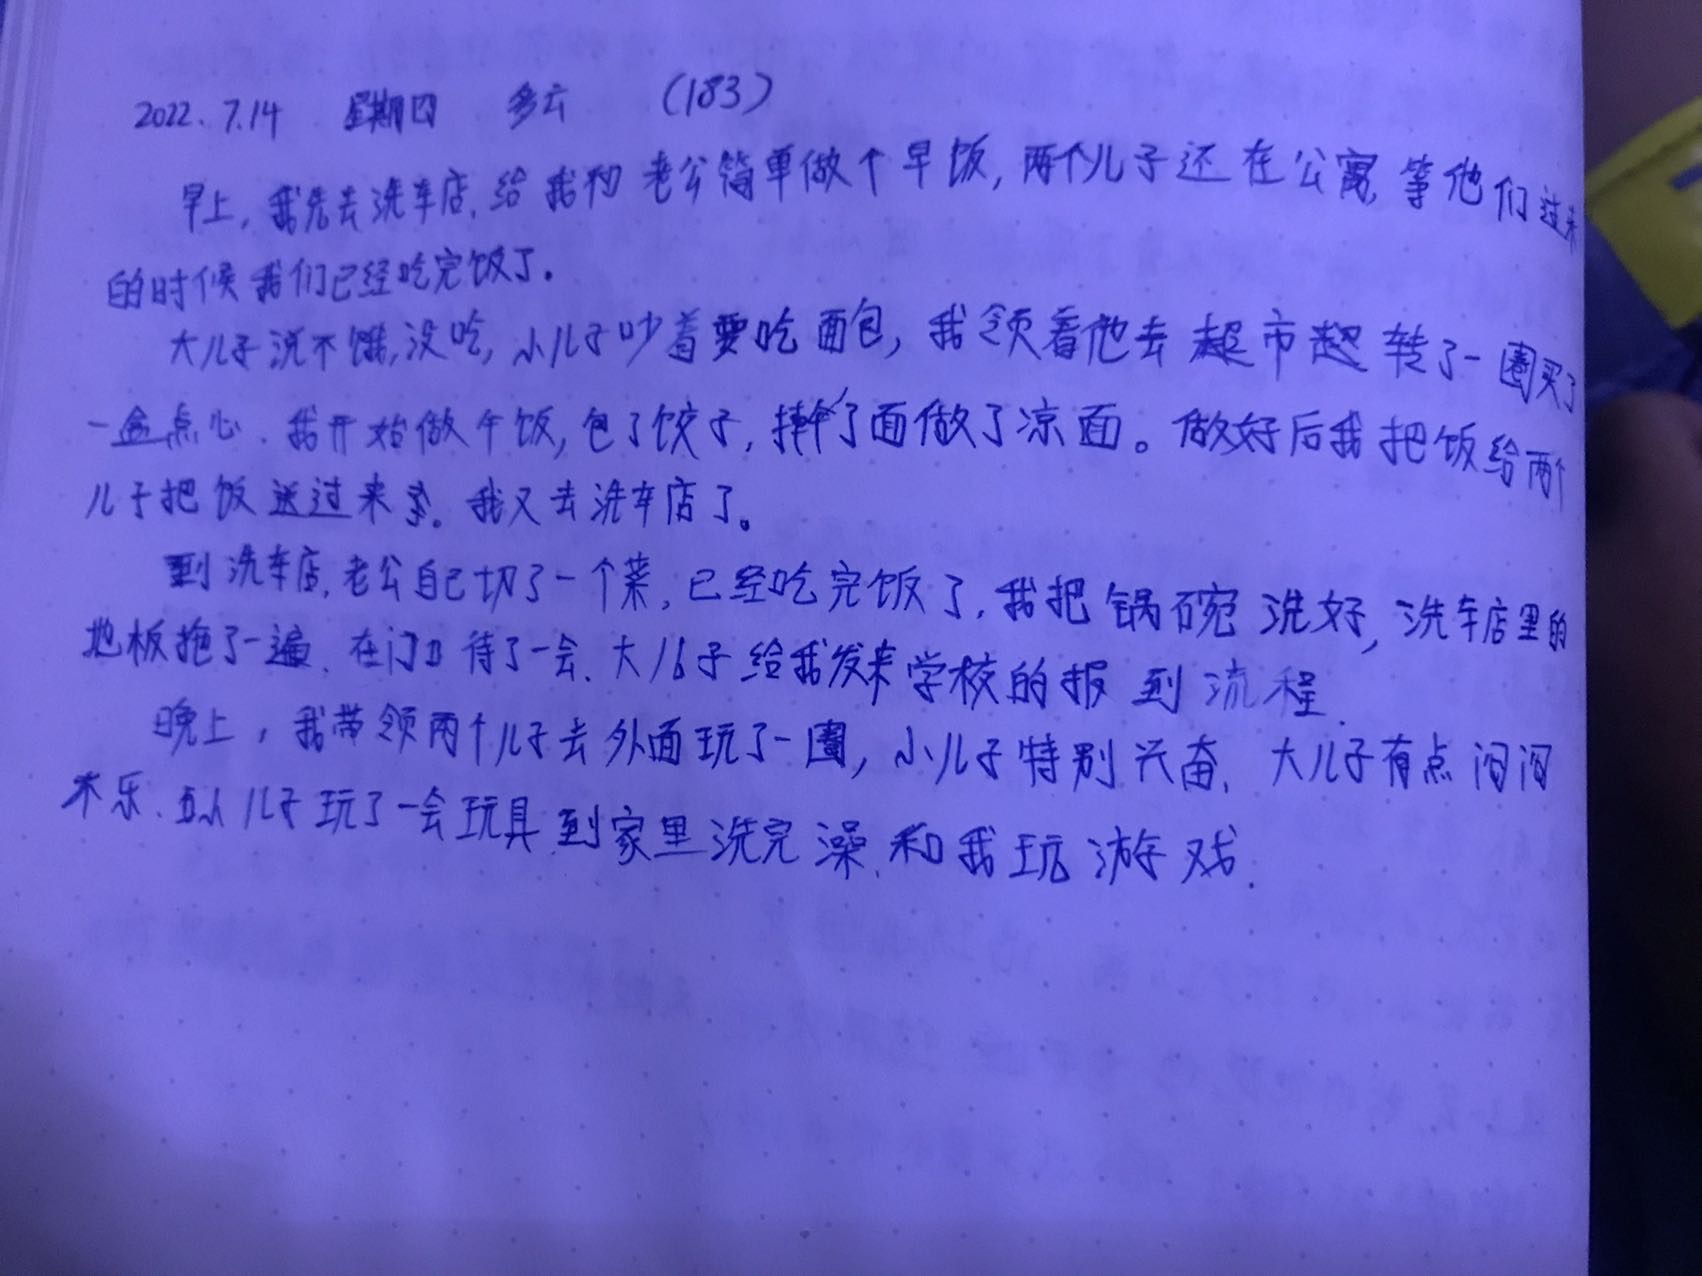 2022.7.14 星期四 多云 (183)
早上,我先去洗车店,给我和老公简单做个早饭,两个儿子还在公寓,等他们过来
的时候我们已经吃完饭了。
大儿子说不饿,没吃,小儿子吵着要吃面包,我领着他去超市超转了一圈买了
一盒点心.我开始做午饭,包了饺子,擀了面做了凉面。做好后我把饭给两个
儿子把饭送过来了。我又去洗车店了。
到洗车店,老公自己切了一个菜,已经吃完饭了,我把锅碗洗好,洗车店里的
地板拖了一遍.在门口待了一会.大儿子给我发来学校的报到流程.
晚上,我带领两个儿子去外面玩了一圈,小儿子特别兴奋.大儿子有点闷闷
不乐.儿子玩了一会玩具.到家里洗完澡.和我玩游戏.